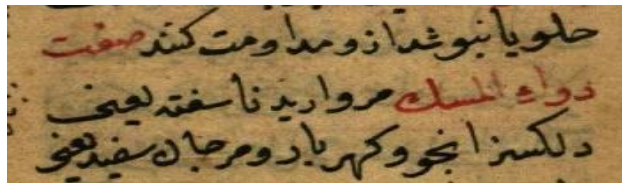 حلویا نبوشد از و مداومت کنند صفت
دواء المسك مروارید ناسفته یعنی
دلکسز انجو و کهربا و مرجان سفید یعنی